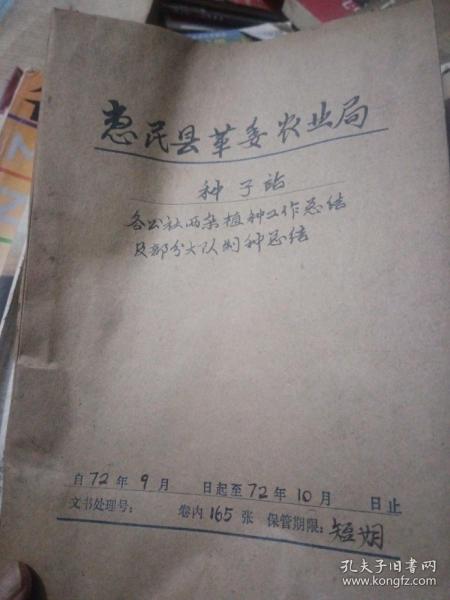 惠民县革委农业局
种子站
各公社两杂植种工作总结
及部分大队制种总结
自72年9月 日起至72年10月 日止
文书处理号: 卷内165张 保管期限:短期
孔夫子旧书网
www.kongfz.com